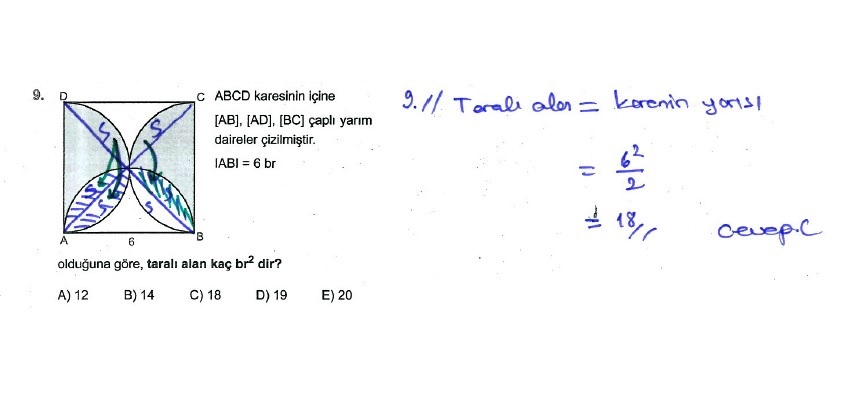 9. D C ABCD karesinin içine
[AB], [AD], [BC] çaplı yarım
daireler çizilmiştir.
IABI = 6 br
S S
S S S
A 6 B
olduğuna göre, taralı alan kaç br² dir?
A) 12 B) 14 C) 18 D) 19 E) 20
9.// Taralı alan = karenin yarısı
= 6²/2
= 18//
Cevap.C